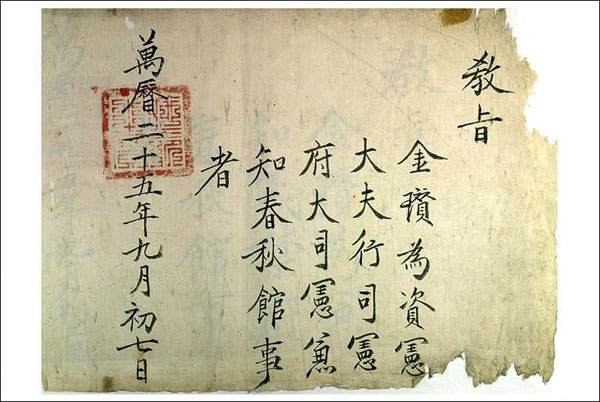 教旨
金瓚為資憲
大夫行司憲
府大司憲兼
知春秋館事
者
萬曆二十五年九月初七日